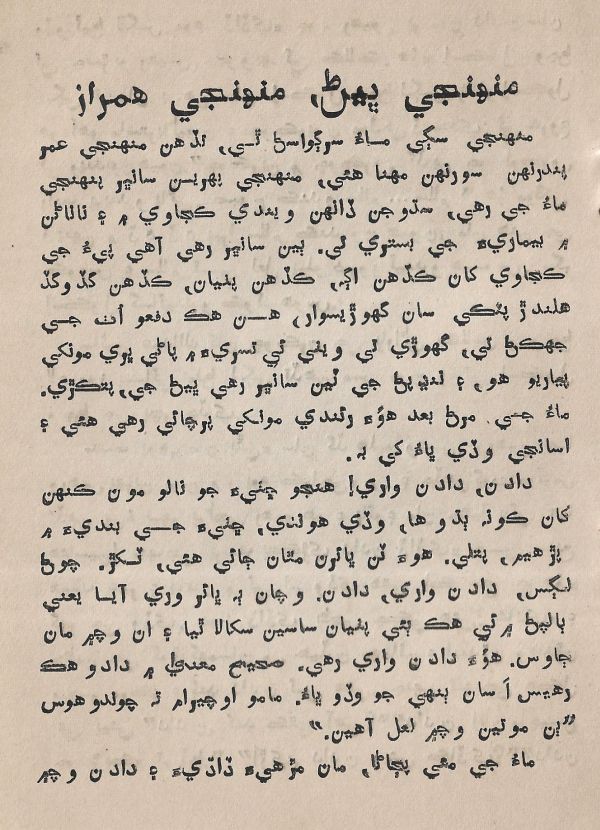 منهنجي ڀيڻ، منهنجي همراز
منهنجي سڳي ماءُ سرڳواسڻ ٿي، تڏهن منهنجي عمر
پندرنهن سورنهن مهنا هئي، منهنجي پهرين ساڀيان پنهنجي
ماءُ جي رهي، سڌوجن ڏانهن ويندي ڪجاوي ۾ ۽ ناناڻن
۾ بيماريءَ جي بستري تي. ٻين ساڀيان رهي آهي پيءُ جي
ڪجاوي کان ڪڏهن اڳه، ڪڏهن پٺيان، ڪڏهن گڏوگڏ
هلندڙ پٽڪي سان گهوڙيسوار، هن هڪ دفعو اُٺ جي
جهڪڻ تي، گهوڙي تي ويٺي ئي تسريءَ ۾ پاڻي ڀري مونکي
پياريو هو، ۽ ننڍپڻ جي ٽين ساڀيان رهي ڀيڻ جي، پٽڪڙي.
ماءُ جي مرڻ بعد هوءَ رئندي مونکي پرچائي رهي هئي ۽
اسانجي وڏي ڀاءُ کي به.
دادن، دادن واري! هنجو ڄٺيءَ جو نالو مون ڪنهن
کان ڪونہ ٻڌو ها، وڏي هوندي، ڄٺيءَ جي ٻنديءَ ۾
پڙهيم، پتلي. هوءَ ٽن ڀائرن مٿان ڄائي هئي، ٽڪڙ. چوڻ
لڳس، دادن واري، دادن. وچان ٻه ڀائر وري آيا يعني
ٻالپڻ ۾ ئي هڪ ٻئي پٺيان ساسين سڪالا ٿيا ۽ ان وچ ۾ مان
ڄاوس. هوءَ دادن واري رهي. صحيح معنيٰ ۾ دادو هڪ
رهيس اَسان ٻنهي جو وڏو ڀاءُ. مامو اوچيرام تہ چوندو هوس
”ٻن موتين وچ ۾ لعل آهين.“
ماءُ جي مئي پڄاڻا، مان مڙهيءَ ڏاڏيءَ ۽ دادن وچ ۾